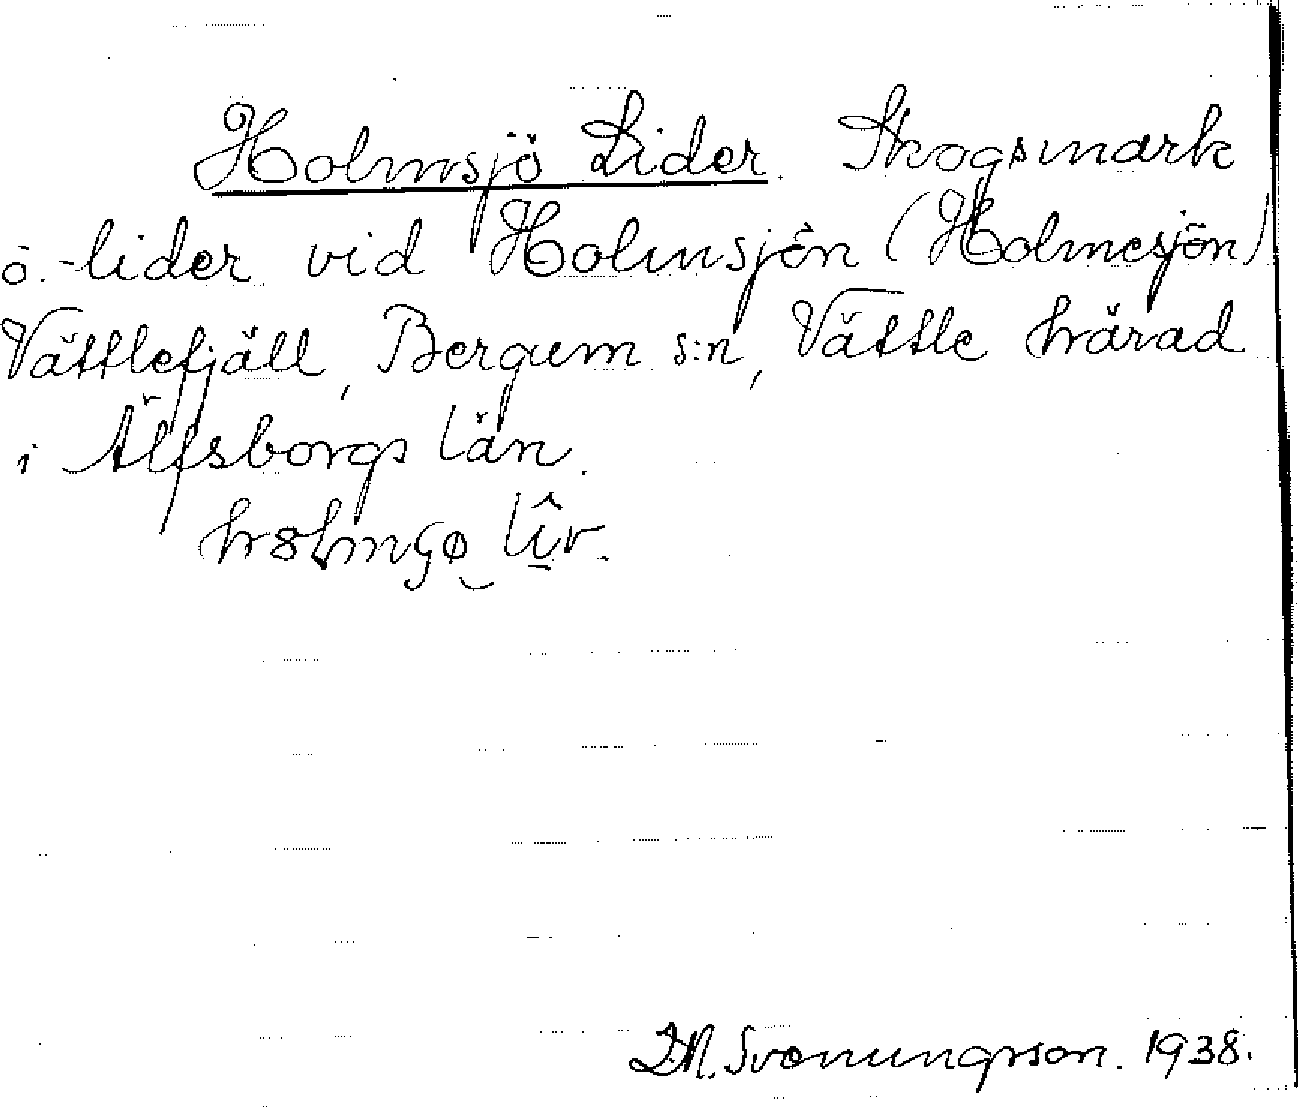 Holmsjö Lider. Skogsmark
o. -lider vid Holmsjön (Holmesjön)
Vättlefjäll, Bergum s:n, Vättle härad
i Älfsborgs län.
D.N. Svenungsson. 1938.